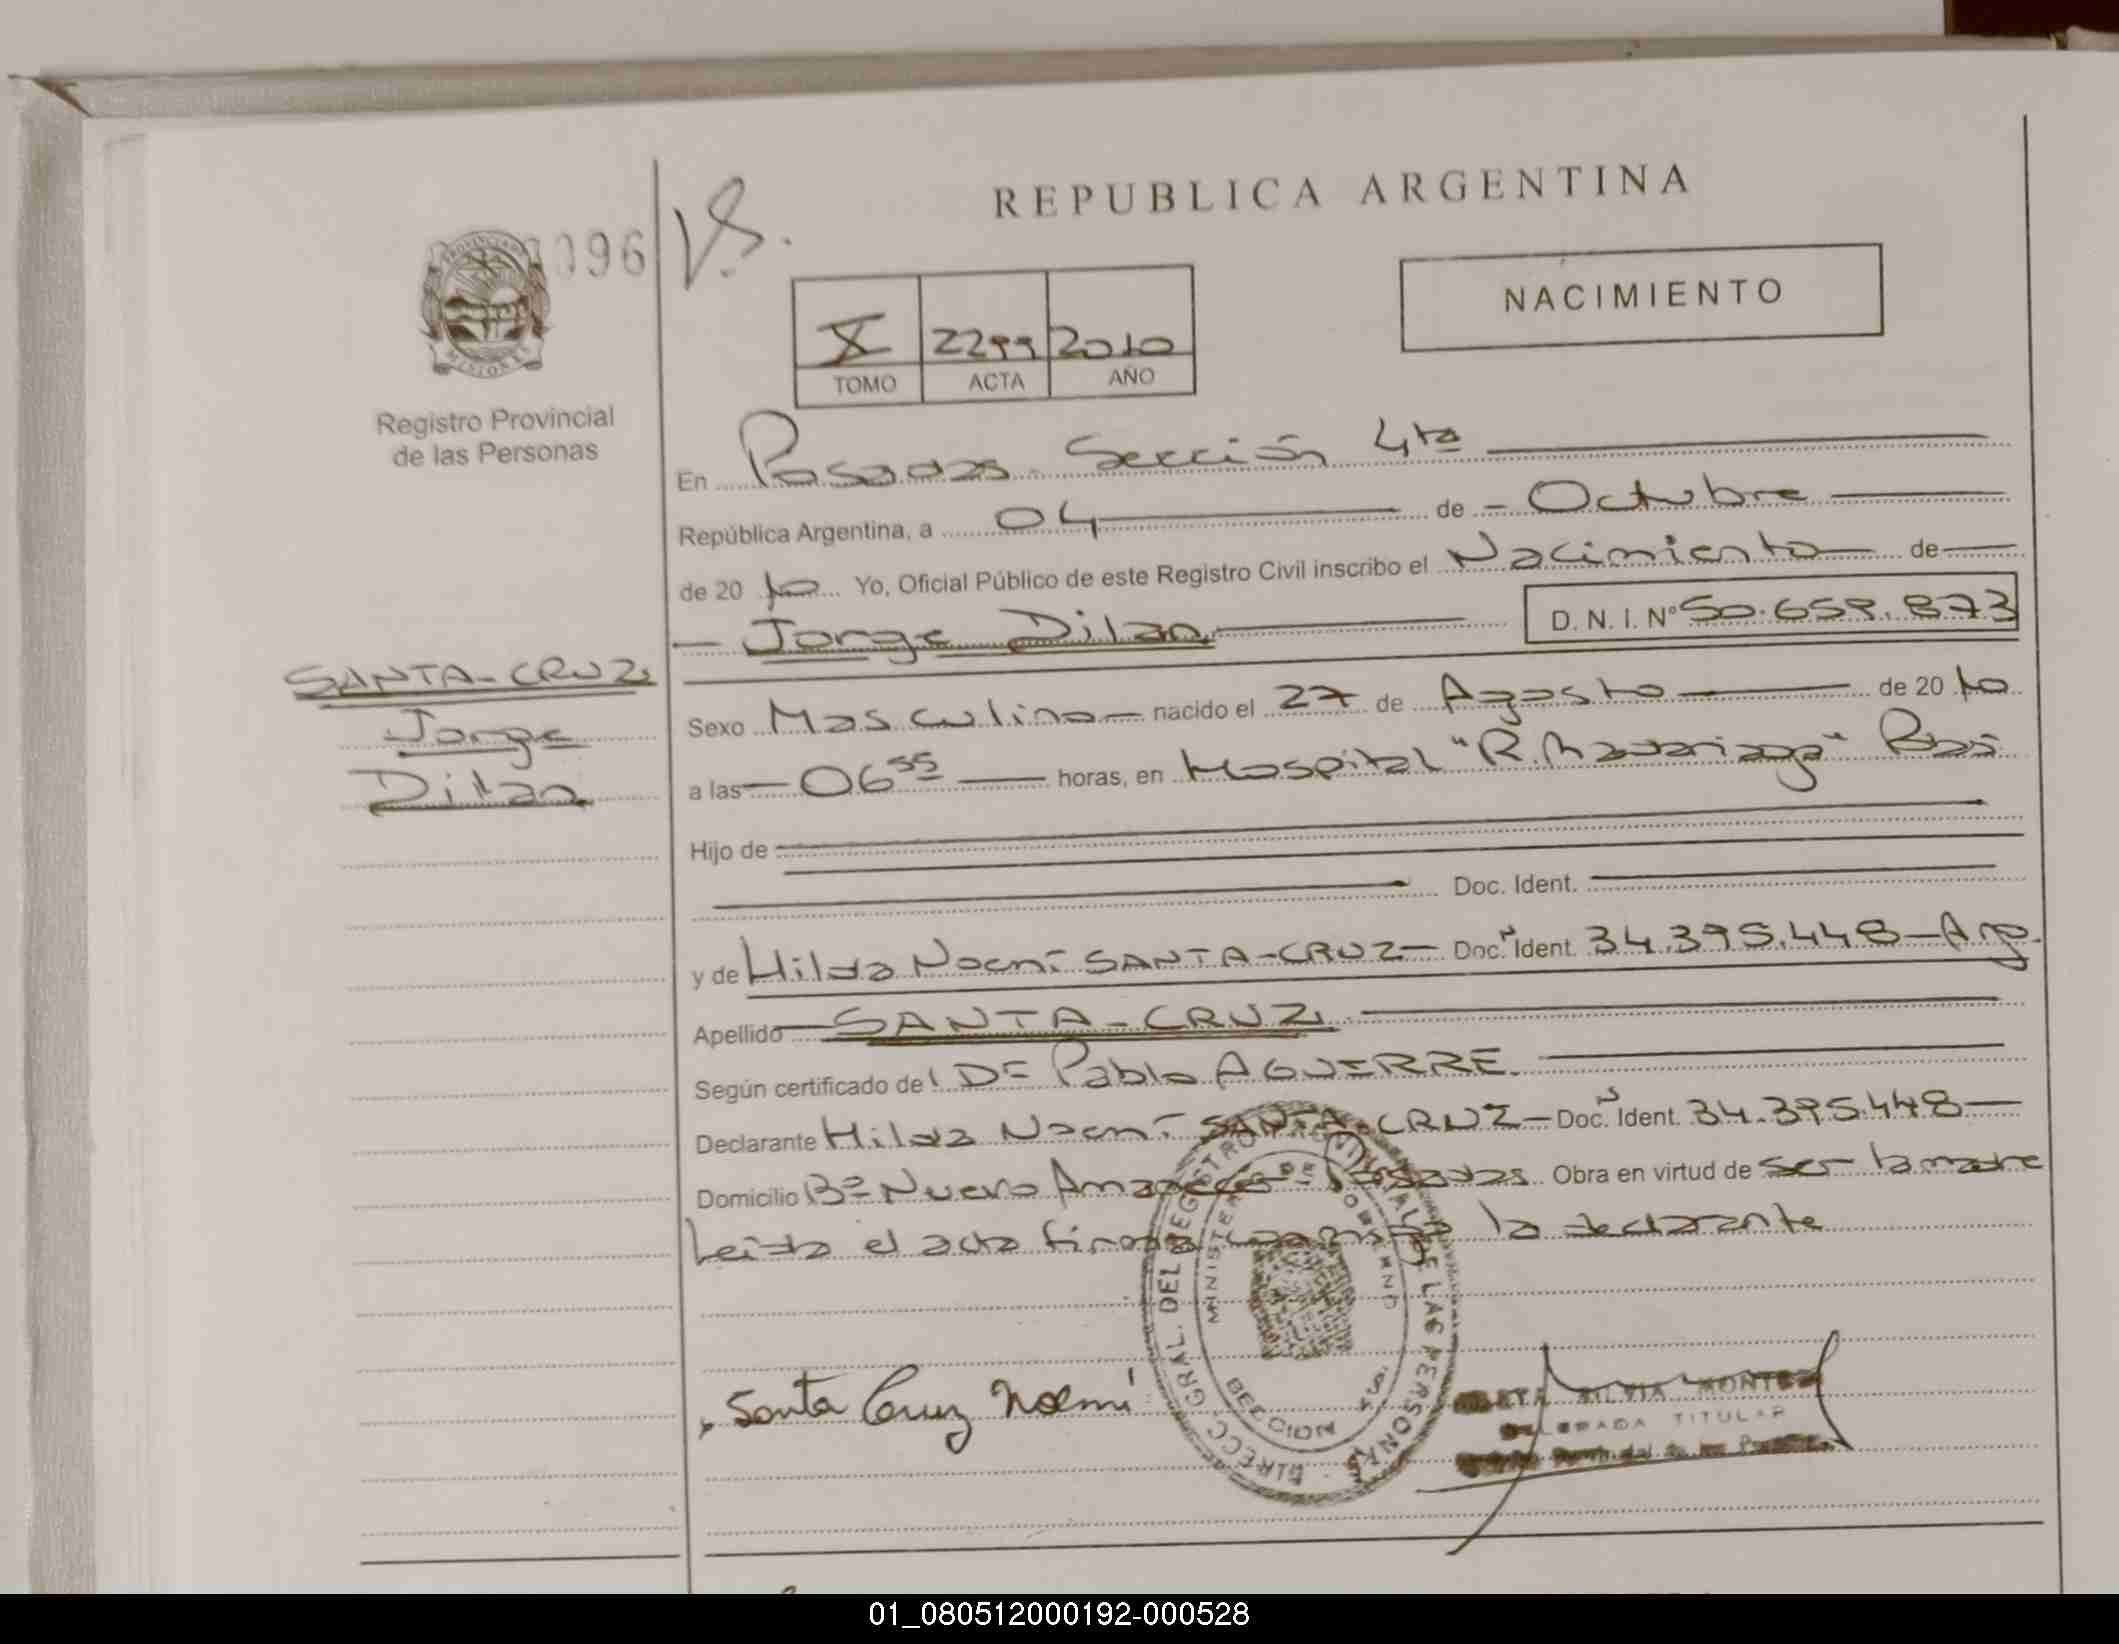 REPUBLICA ARGENTINA
096
NACIMIENTO
X 2299 2010
TOMO ACTA AÑO
Registro Provincial
de las Personas
En Posadas - Sección 4ta
República Argentina, a 04 de - Octubre
de 20 10 Yo, Oficial Público de este Registro Civil inscribo el Nacimiento de
Jorge Dilan D. N. I. Nº 50.659.873
SANTA-CRUZ
Jorge
Dilan
Sexo Masculino nacido el 27 de Agosto de 20 10
a las 06 55 horas, en Hospital "R. Madariaga" Pdas
Hijo de
Doc. Ident.
y de Hilda Noemí SANTA-CRUZ Doc. Ident. 34.395.448 - Arg.
Apellido SANTA-CRUZ
Según certificado del Dr Pablo AGUIERRE.
Declarante Hilda Noemí SANTA-CRUZ Doc. Ident. 34.395.448
Domicilio Bº Nuevo Amanecer - Posadas. Obra en virtud de ser la madre
Leida el acta firma la declarante
DIRECC. GRAL. DEL REGISTRO PROVINCIAL DE LAS PERSONAS
MINISTERIO DE GOBIERNO
SECCION 4ta.
Santa Cruz Noemí
SILVIA MONTES
DELEGADA TITULAR
01_080512000192-000528